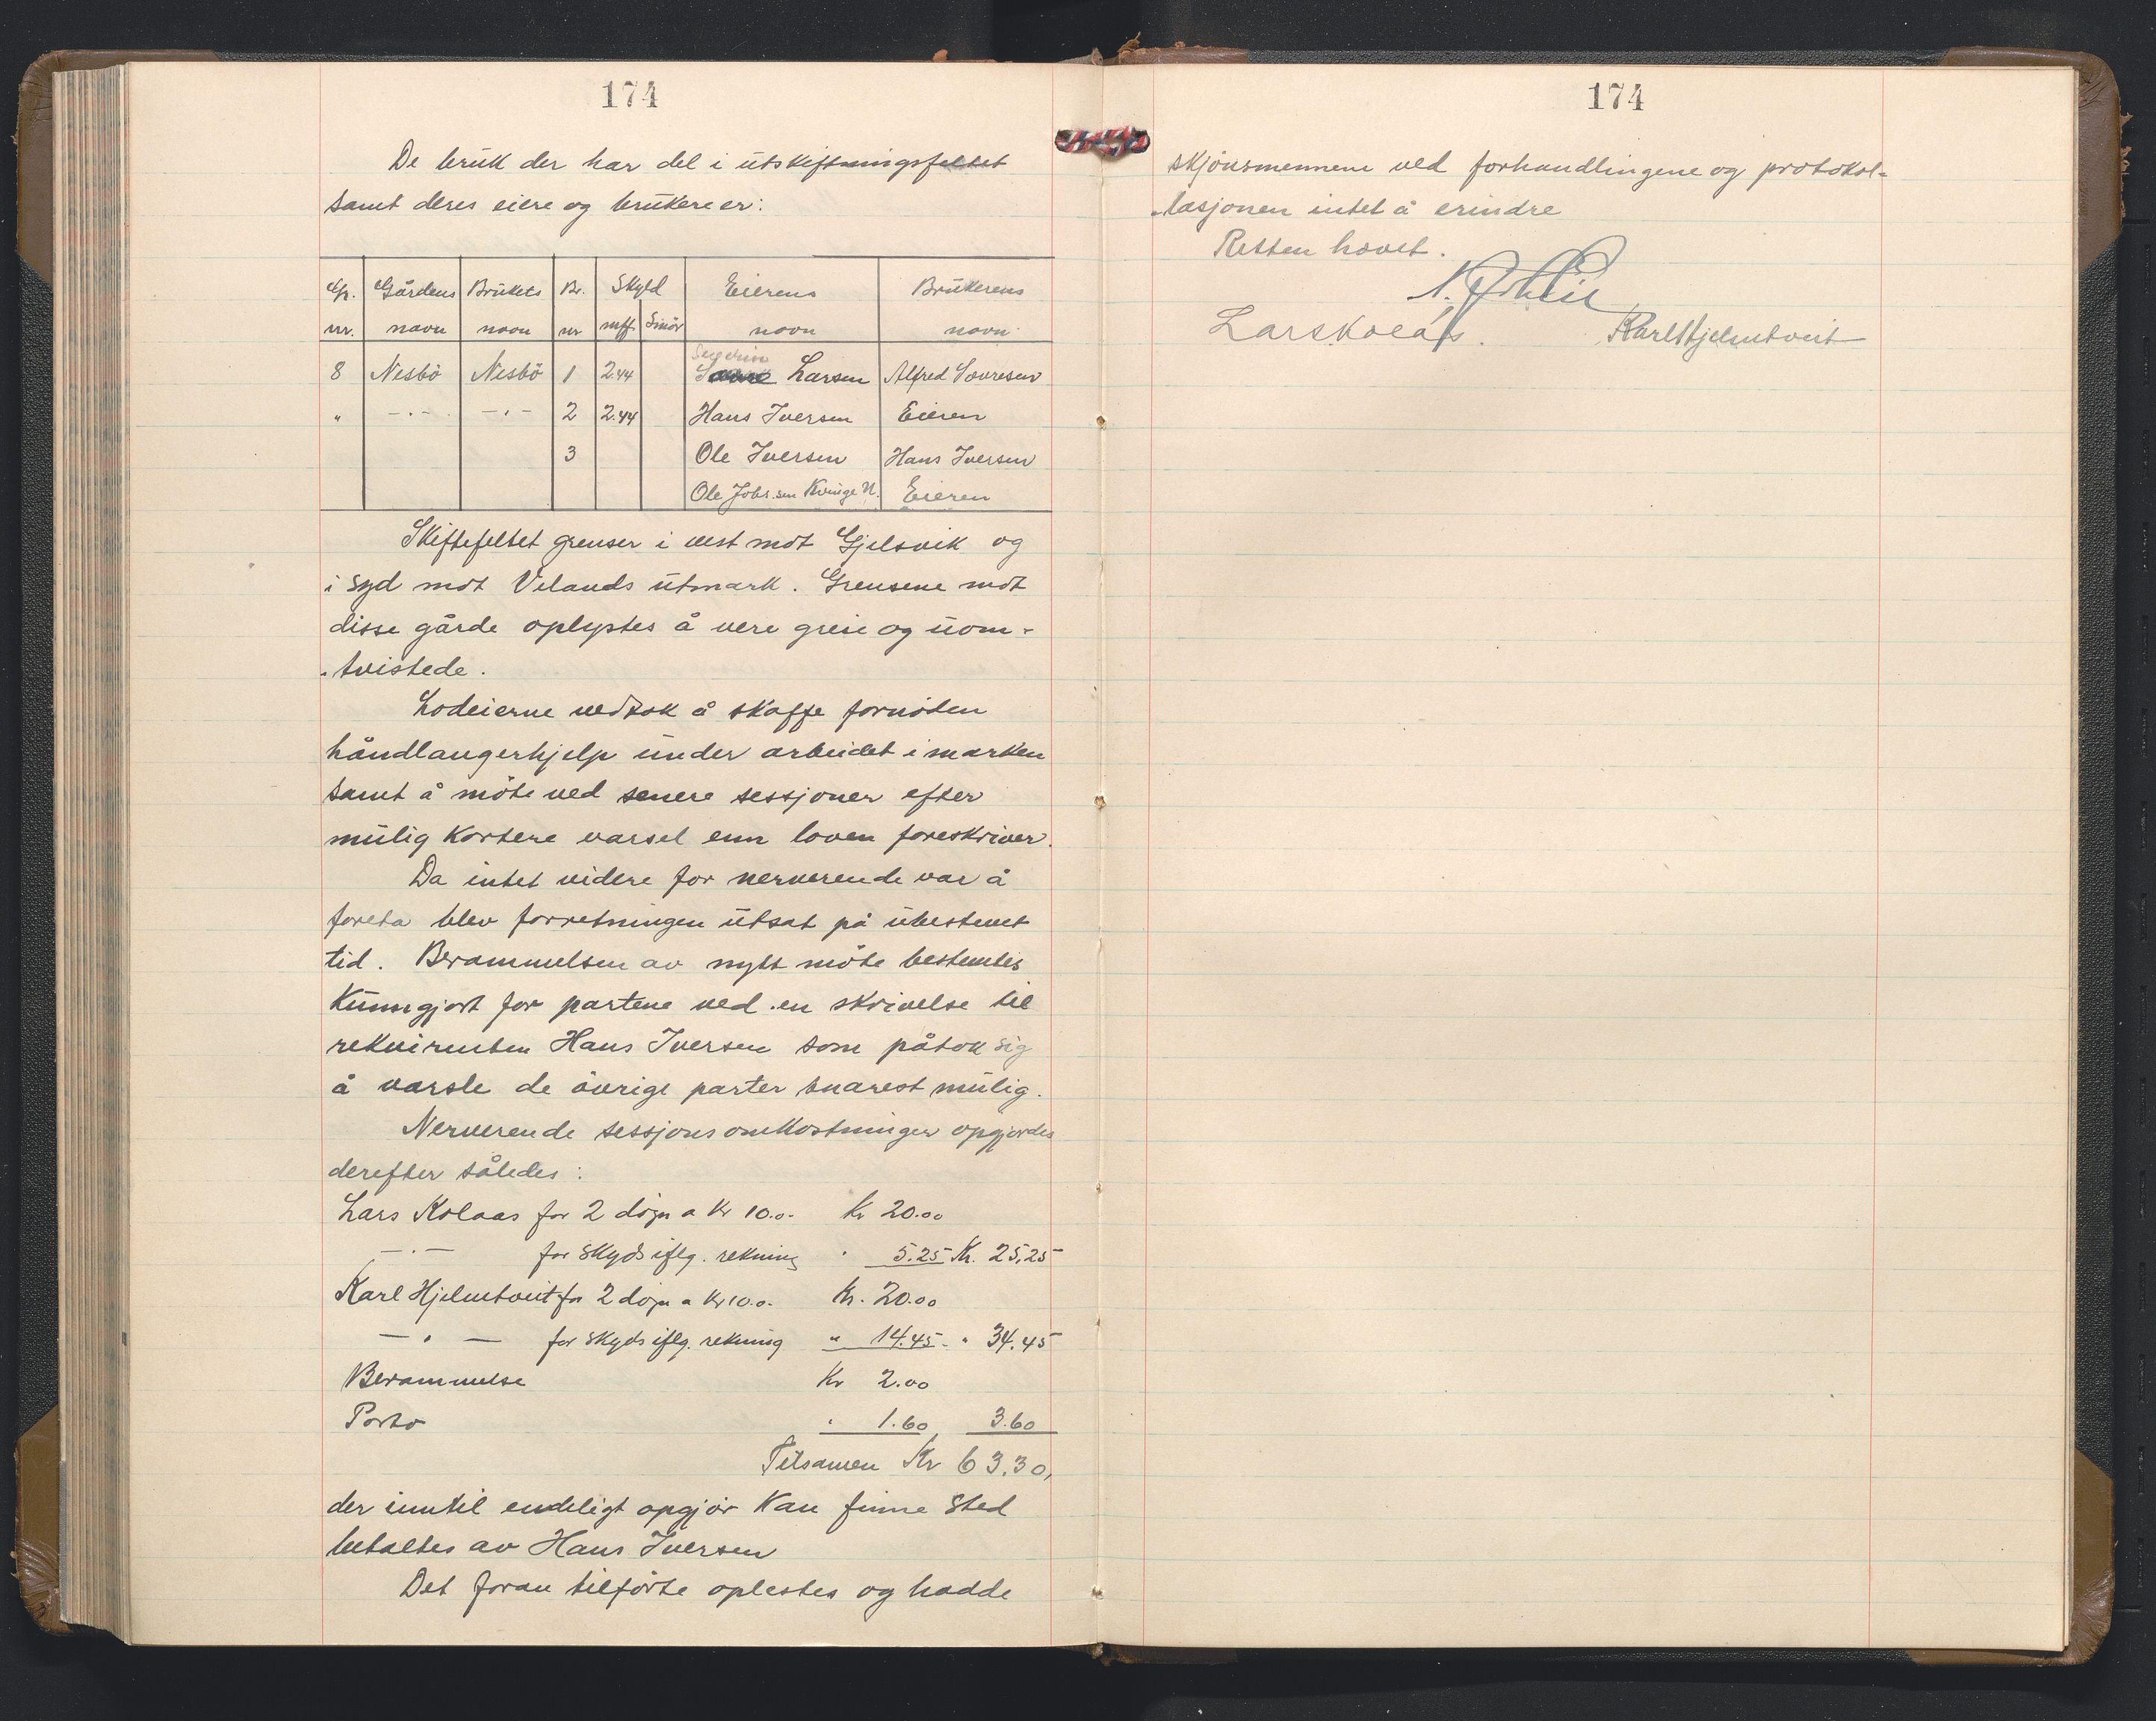 174
De bruk der har del i utskiftningsfeltet
samt deres eiere og brukere er:
Gr. Gårdens Brukets Br. Skyld Eierens Brukerens
nr. navn navn nr mff Smör navn navn
Severin
8 Nesbö Nesbö 1 2.44 Larsen Alfred Sovresen
" -"- -"- 2 2.44 Hans Iversen Eieren
3 Ole Iversen Hans Iversen
Ole Johs.sen Kvinge N. Eieren
Skiftefeltet grenser i vest mot Gjelsvik og
i syd mot Velands utmark. Grensene mot
disse gårde oplystes å vere greie og uom-
-tvistede.
Lodeierne vedtok å skaffe fornöden
håndlangerhjelp under arbeidet i marken
samt å möte ved senere sessjoner efter
mulig kortere varsel enn loven foreskriver.
Da intet videre for nerverende var å
foreta blev forretningen utsat på ubestemt
tid. Berammelsen av nytt möte bestemtes
kunngjort for partene ved en skrivelse til
rekvirenten Hans Iversen som påtok sig
å varsle de övrige parter snarest mulig.
Nerverende sessjonsomkostninger opgjordes
derefter således:
Lars Kolaas for 2 dögn a Kr 10.0. Kr 20.00
-"- for skyds iflg. rekning " 5.25 Kr. 25,25
Karl Hjelmtveit for 2 dögn a Kr 10.0. Kr. 20.00
-"- for skyds iflg. rekning " 14.45. " 34.45
Berammelse Kr 2.00
Porto " 1.60 3.60
Tilsamen Kr 63.30,
der inntil endeligt opgjör kan finne sted
betaltes av Hans Iversen
Det foran tilförte oplestes og hadde
174
skjönsmennene ved forhandlingene og protokol-
-lasjonen intet å erindre
Retten hevet.
Lars Kolås. Karl Hjelmtveit